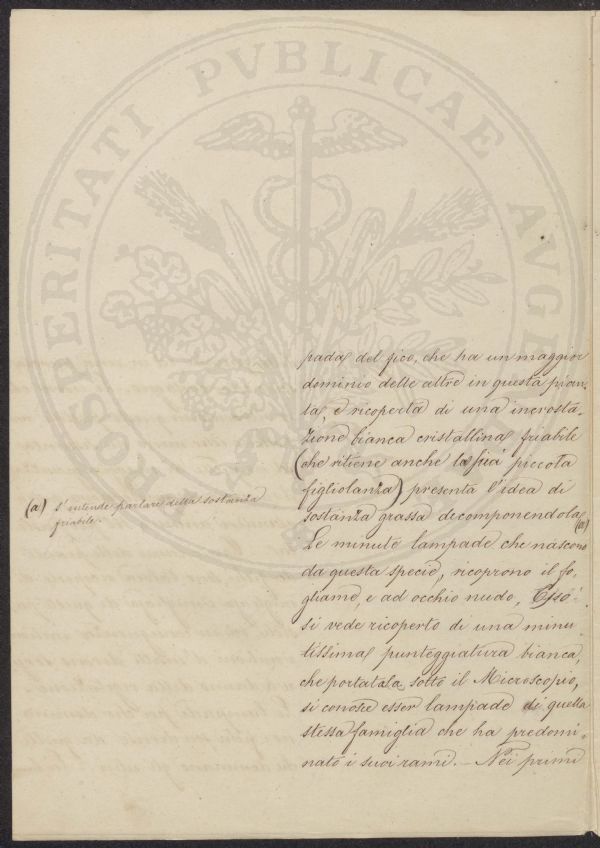 PROSPERITATI PVBLICAE AVGE
pada del fico, che ha un maggior
dominio delle altre in questa pian-
ta, è ricoperta di una incrosta-
zione bianca cristallina friabile
(che ritiene anche la più piccola
figliolanza) presenta l'idea di
sostanza grassa decomponendola (a)
Le minute lampade che nascono
da questa specie, ricoprono il fo-
gliame, e ad occhio nudo, Esso
si vede ricoperto di una minu-
tissima punteggiatura bianca,
che portatala sotto il Microscopio,
si conosce esser lampade di quella
stessa famiglia che ha predomi-
nato i suoi rami. — Nei primi
(a) s'intende parlare della sostanza
friabile.